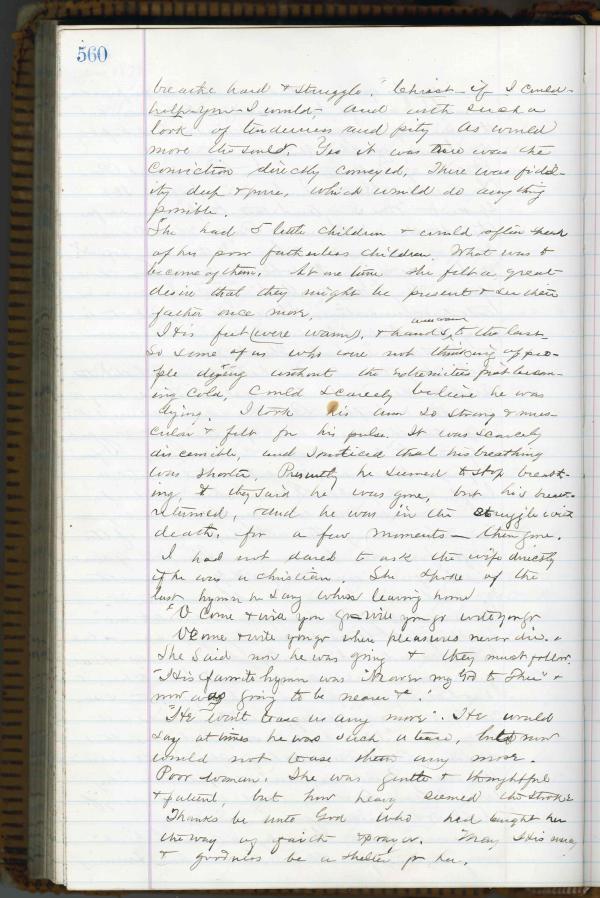 560
breathe hard & struggle. "Christ if I could
help you I would, and with such a
look of tenderness and pity as would
move the soul. Yes it was there was the
conviction directly conveyed, There was fidel-
ity deep & pure, which would do anything
possible.
She had 5 little children & would often speak
of his poor fatherless children. What was to
become of them. At one time she felt a great
desire that they might be present & see their
father once more.
His feet (were warm), & hands, to the last
So some of us who were not thinking of peo-
ple dying without the extremities first becom-
ing cold, could scarcely believe he was
dying. I took his arm so strong & mus-
cular & felt for his pulse. It was scarcely
discernible, and I noticed that his breathing
was shorter, Presently he seemed to stop breath-
ing, & they said he was gone, but his breath
returned, and he was in the struggle with
death, for a few moments — then gone.
I had not dared to ask the wife directly
if he was a christian. She spoke of the
last hymn he sang when leaving home
"O Come & will you go will you go
O Come & will you go where pleasures never die. "
She said now he was going & they must follow.
"His favorite hymn was "Nearer my God to Thee" &
now was going to be nearer &. "
"He won't tease us any more". He would
say at times he was such a tease, but now
would not tease them any more.
Poor woman. She was gentle & thoughtful
& patient, but how heavy seemed the stroke
Thanks be unto God who had taught her
the way of faith & prayer. May His mercy
& goodness be a shelter for her.